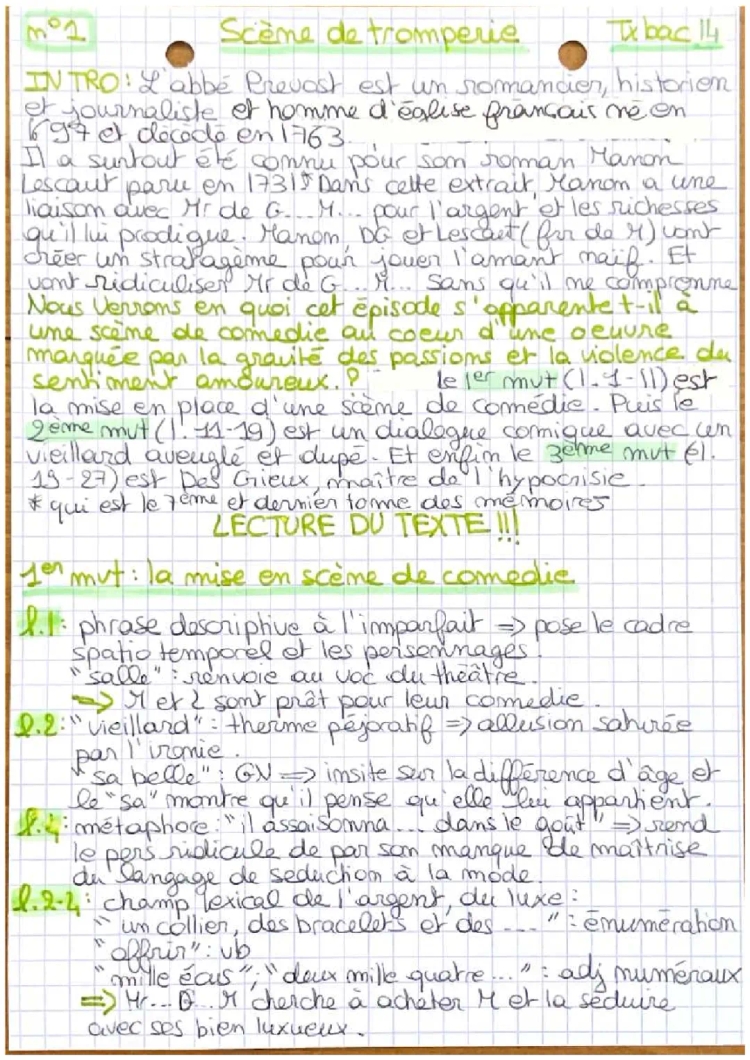 n°1 Scène de tromperie Tx bac 14
INTRO: L'abbé Prevost est un romancier, historien
et journaliste et homme d'église français né en
1697 et décédé en 1763
Il a surtout été connu pour son roman Manon
Lescaut paru en 1731* Dans cette extrait, Manon a une
liaison avec Mr de G... M... pour l'argent et les richesses
qu'il lui prodigue. Manon, DG et Lescaut (frr de M) vont
créer un stratagème pour jouer l'amant naïf. Et
vont ridiculiser Mr de G... M... sans qu'il ne comprenne
Nous verrons en quoi cet épisode s'apparente t-il à
une scène de comedie au coeur d'une oeuvre
marquée par la gravité des passions et la violence du
sentiment amoureux.? le 1er mvt (l. 1-11) est
la mise en place d'une scène de comédie. Puis le
2ème mvt (l. 11-19) est un dialogue comique avec un
vieillard aveuglé et dupé. Et enfin le 3ème mvt (l.
19-27) est Des Grieux, maître de l'hypocrisie.
* qui est le 7ème et dernier tome des mémoires
LECTURE DU TEXTE !!!
1er mvt: la mise en scène de comedie
l.1: phrase descriptive à l'imparfait => pose le cadre
spatio temporel et les personnages.
"salle": renvoie au voc du théâtre.
=> M et L sont prêt pour leur comedie.
l.2: "vieillard": therme péjoratif => allusion saturée
par l'ironie.
"sa belle": GN => insite sur la différence d'âge et
le "sa" montre qu'il pense qu'elle lui appartient.
l.4: métaphore: "il assaisonna... dans le goût" => rend
le pers ridicule de par son manque de maîtrise
du langage de seduction à la mode.
l.2-4: champ lexical de l'argent, du luxe:
"un collier, des bracelets et des ---": énumération
"offrir": vb
"mille écus"; "deux mille quatre...": adj numéraux
=> Mr... G... M cherche à acheter M et la séduire
avec ses bien luxueux.